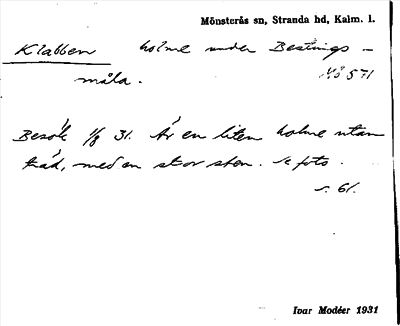 Mönsterås sn, Stranda hd, Kalm. l.
Klabben holme under Beatings-
måla. Mö 571
Besök 1/8 31. Är en liten holme utan
träd, med en stor sten. Se foto.
s. 61.
Ivar Modéer 1931